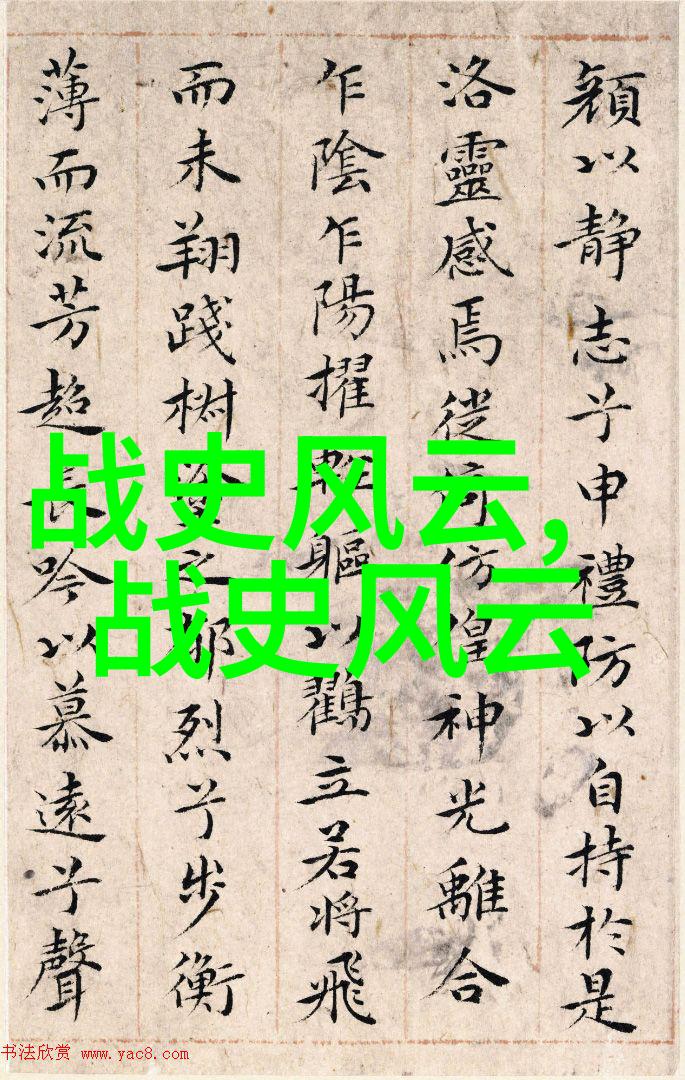 顔以静志兮申禮防以自持於是
洛靈感焉徙倚仿偟神光離合
乍陰乍陽擢輕軀以鸛立若将飛
而未翔踐椒塗之郁烈兮步衡
薄而流芳超長吟以慕遠兮聲
战史风云,
战史风云
书法欣赏 www.yac8.com